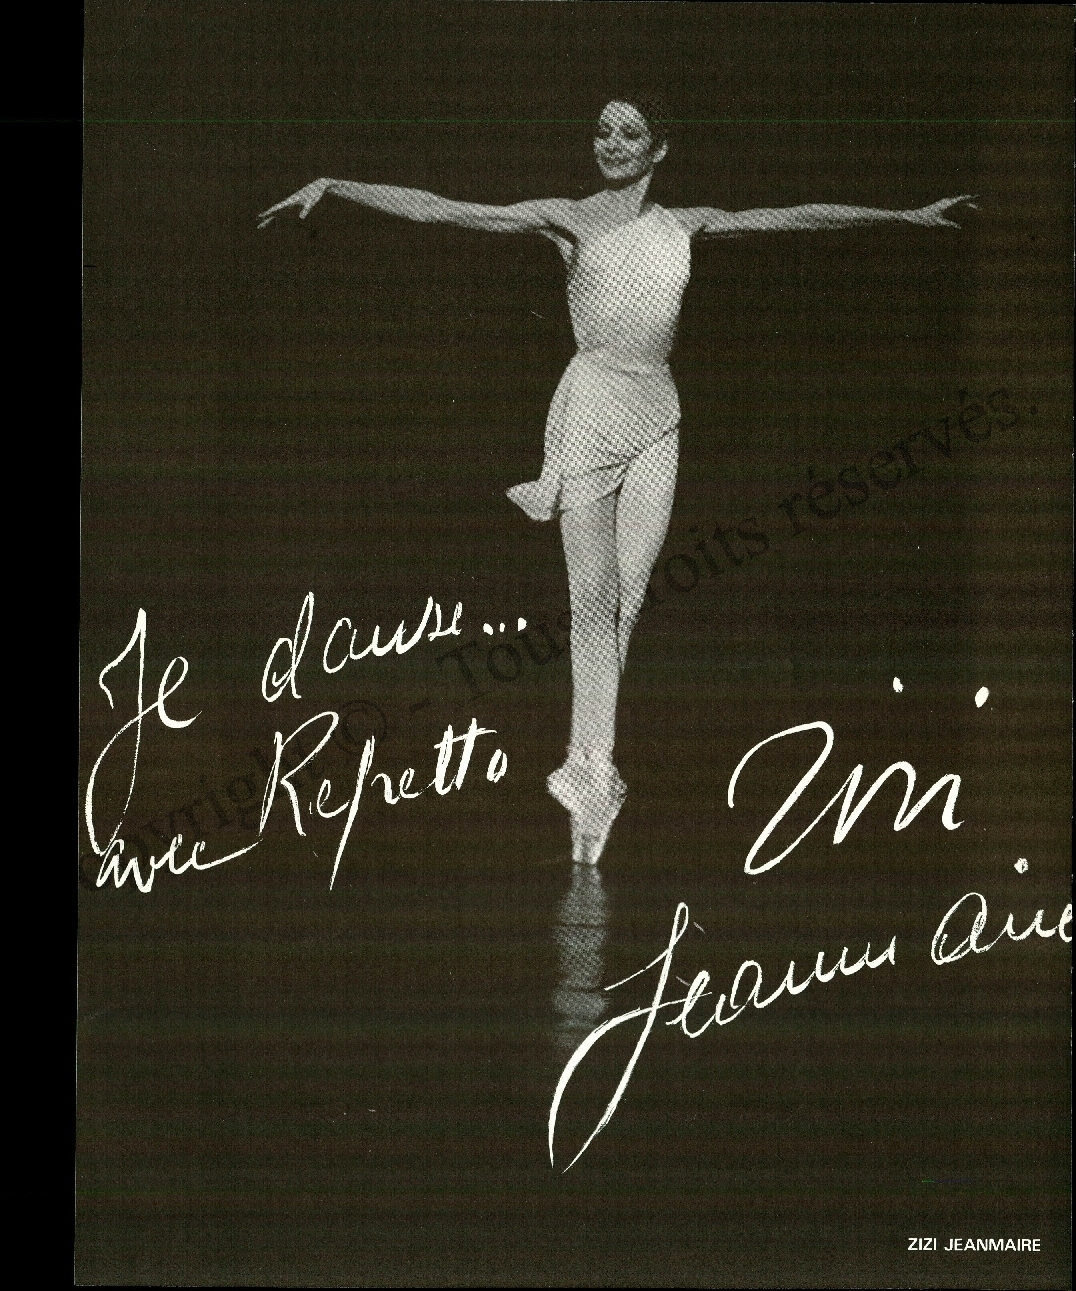 Je danse...
avec Repetto
Zizi
Jeanmaire
Copyright © - Tous droits réservés.
ZIZI JEANMAIRE